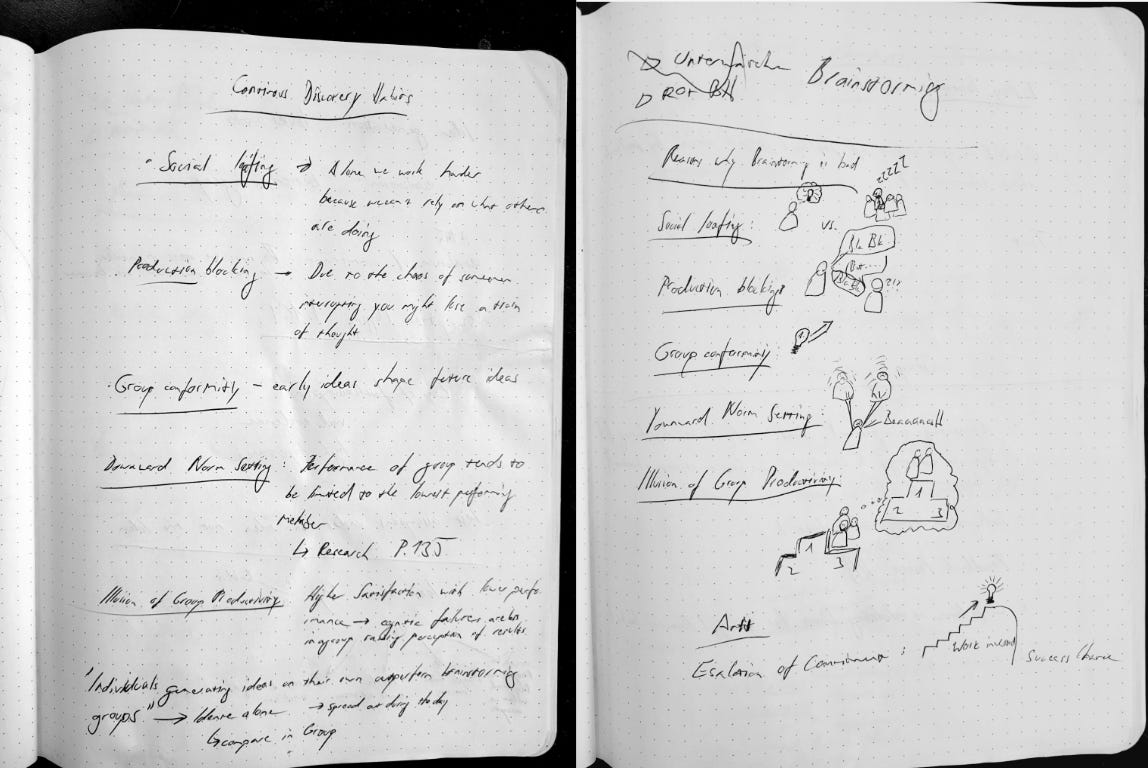 Continous Discovery Habits
Social loafing → Alone we work harder
because we can't rely on what others
are doing
Production blocking → Due to the chaos of someone
interrupting you might lose a train
of thought
Group conformity – early ideas shape future ideas
Downward Norm Setting: Performance of group tends to
be limited to the lowest performing
member
↳ Research P.135
Illusion of Group Productivity Higher Satisfaction with lower perfo
rmance → cognitive failures are less
in group raising perception of results
"Individuals generating ideas on their own outperform brainstorming
groups" → Ideate alone → spread out during the day
↳ compare in Group
Brainstorming
Reasons why Brainstorming is bad
zzzz
Social loafing: vs.
Bla Bla
But...
Production blocking: ?!?
Group conformity:
Downward Norm Setting:
Illusion of Group Productivity:
1
2 3
1
2 3
Escalation of Commitment: Work invest
Success Chance